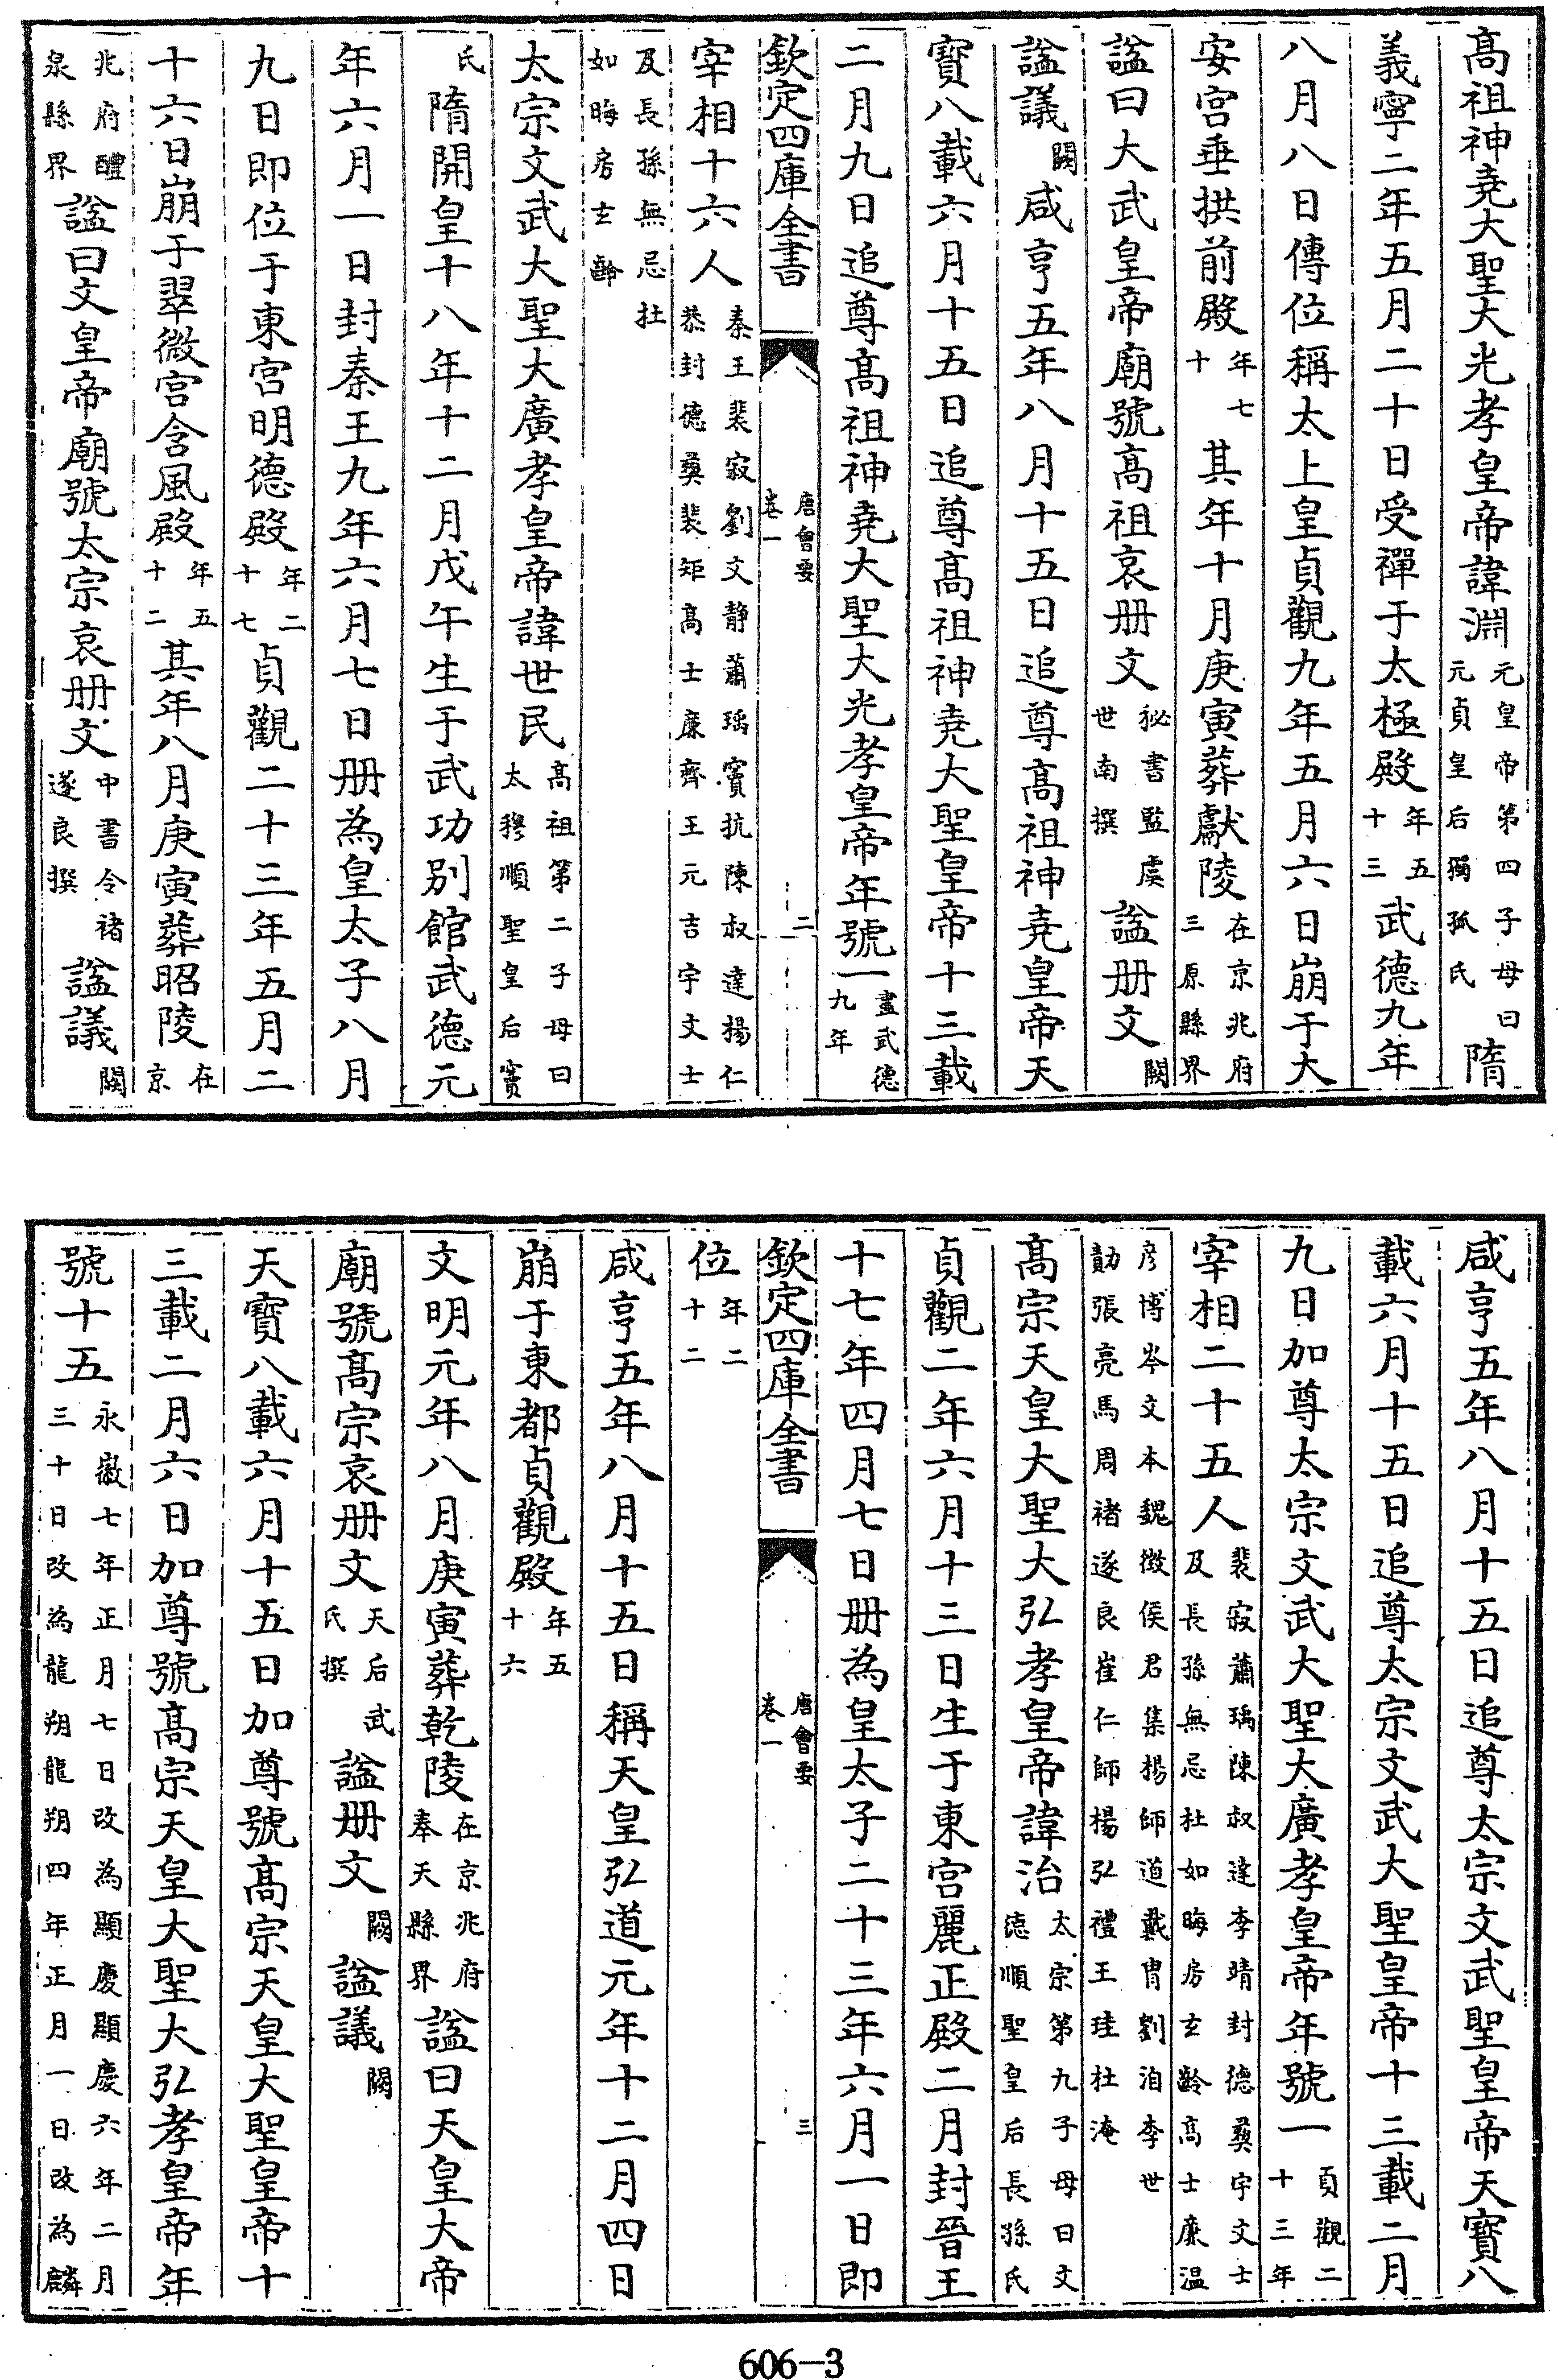 高祖神堯大聖大光孝皇帝諱淵元皇帝第四子母曰元貞皇后獨孤氏隋
義寧二年五月二十日受禪于太極殿年五十三武德九年
八月八日傳位稱太上皇貞觀九年五月六日崩于大
安宮垂拱前殿年七十其年十月庚寅葬獻陵在京兆府三原縣界
諡曰大武皇帝廟號高祖哀册文秘書監虞世南撰諡册文闕
諡議闕咸亨五年八月十五日追尊高祖神堯皇帝天
寶八載六月十五日追尊高祖神堯大聖皇帝十三載
二月九日追尊高祖神堯大聖大光孝皇帝年號一盡武德九年
欽定四庫全書 唐會要卷一 二
宰相十六人秦王裴寂劉文静蕭瑀竇抗陳叔達楊仁恭封德彝裴矩高士廉齊王元吉宇文士
及長孫無忌杜如晦房玄齡
太宗文武大聖大廣孝皇帝諱世民高祖第二子母曰太穆順聖皇后竇
氏隋開皇十八年十二月戊午生于武功别館武德元
年六月一日封秦王九年六月七日册為皇太子八月
九日即位于東宮明德殿年二十七貞觀二十三年五月二
十六日崩于翠微宮含風殿年五十二其年八月庚寅葬昭陵在京
兆府醴泉縣界諡曰文皇帝廟號太宗哀册文中書令褚遂良撰諡議闕
咸亨五年八月十五日追尊太宗文武聖皇帝天寶八
載六月十五日追尊太宗文武大聖皇帝十三載二月
九日加尊太宗文武大聖大廣孝皇帝年號一貞觀二十三年
宰相二十五人裴寂蕭瑀陳叔達李靖封德彝宇文士及長孫無忌杜如晦房玄齡高士廉温
彦博岑文本魏徴侯君集楊師道戴胄劉洎李世勣張亮馬周褚遂良崔仁師楊弘禮王珪杜淹
高宗天皇大聖大弘孝皇帝諱治太宗第九子母曰文德順聖皇后長孫氏
貞觀二年六月十三日生于東宮麗正殿二月封晉王
十七年四月七日册為皇太子二十三年六月一日即
欽定四庫全書 唐會要卷一 三
位年二十二
咸亨五年八月十五日稱天皇弘道元年十二月四日
崩于東都貞觀殿年五十六
文明元年八月庚寅葬乾陵在京兆府奉天縣界諡曰天皇大帝
廟號高宗哀册文天后武氏撰諡册文闕諡議闕
天寶八載六月十五日加尊號高宗天皇大聖皇帝十
三載二月六日加尊號高宗天皇大聖大弘孝皇帝年
號十五永徽七年正月七日改為顯慶顯慶六年二月三十日改為龍朔龍朔四年正月一日改為麟
606-3